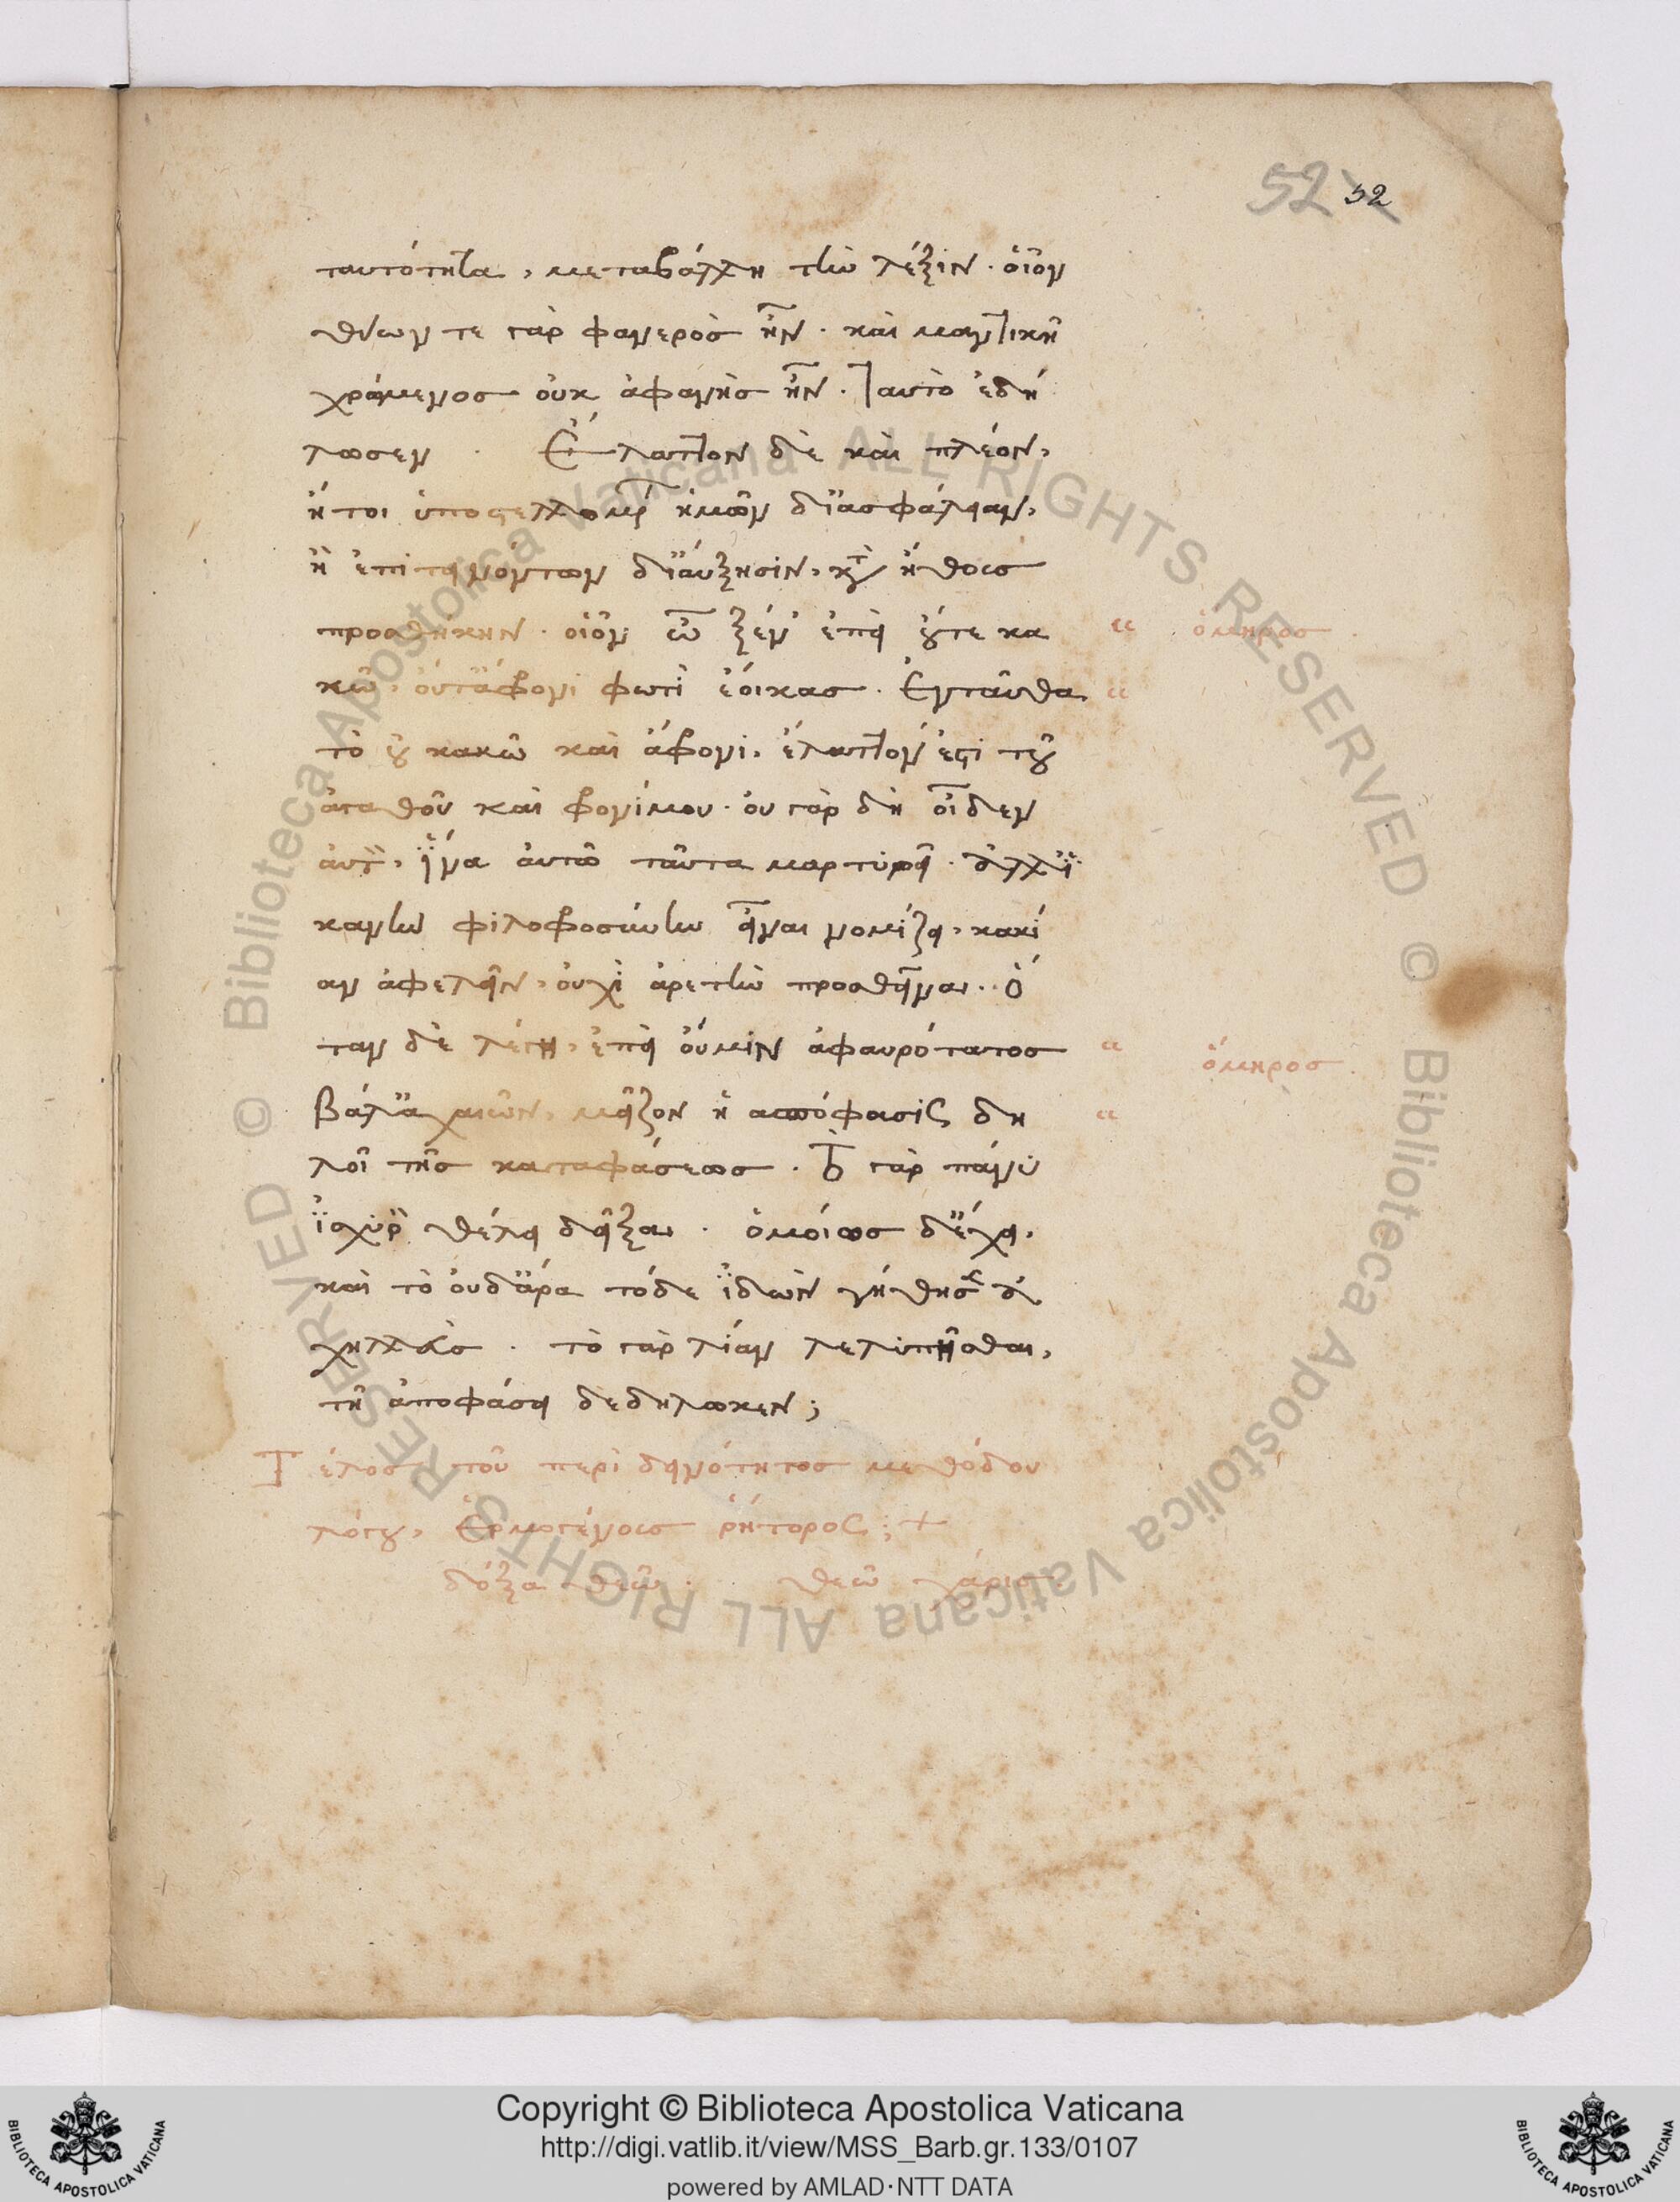 52 52
ταυτότητα, μεταβάλλη τὴν λέξιν. οἷον
θύων τε γὰρ φανερὸς ἦν. καὶ μαντικῆ
χρώμενος οὐκ ἀφανὴς ἦν. ταυτὸ ἐδή
λωσεν. Ἔλαττον δὲ καὶ πλέον,
ἤτοι ὑποστελλομένων ἡμῶν δι' ἀσφάλειαν,
ἢ ἐπιτεινόντων δι' αὔξησιν, κατ' ἤθους
προσθήκην. οἷον ὦ ξεῖν' ἐπεὶ οὔτε κα
“ ὅμηρος
κῶ, οὔτ' ἄφρονι φωτὶ ἔοικας. Ἐνταῦθα
“
τὸ οὐ κακῶ καὶ ἄφρονι, ἔλαττόν ἐστι τοῦ
ἀγαθοῦ καὶ φρονίμου. οὐ γὰρ δὴ οἶδεν
αὐτὸν, ἵνα αὐτῶ ταῦτα μαρτυρῆ. ἀλλ' ἱ
κανὴν φιλοφροσύνην εἶναι νομίζει, κακί
αν ἀφελεῖν, οὐχὶ ἀρετὴν προσθεῖναι. Ὅ
ταν δὲ λέγη, ἐπεὶ οὔ μιν ἀφαυρότατος
“ ὅμηρος
βάλ' ἀχαιῶν, μεῖζον ἡ ἀπόφασις δη
“
λοῖ τῆς καταφάσεως. Τὸ γὰρ πάνυ
ἰσχυρὸν θέλει δεῖξαι. ὁμοίως δ' ἔχει,
καὶ τὸ οὐδ' ἄρα τόδε ἰδὼν γήθησεν ἀ
χιλλεὺς. τὸ γὰρ λίαν λελυπῆσθαι,
τῆ ἀποφάσει δεδήλωκεν;
Τέλος τοῦ περὶ δεινότητος μεθόδου
λόγου, Ἑρμογένους ῥήτορος; +
δόξα θεῶ. θεῶ χάρις.
Copyright © Biblioteca Apostolica Vaticana
http://digi.vatlib.it/view/MSS_Barb.gr.133/0107
powered by AMLAD·NTT DATA
BIBLIOTECA APOSTOLICA VATICANA
BIBLIOTECA APOSTOLICA VATICANA
© Biblioteca Apostolica Vaticana ALL RIGHTS RESERVED © Biblioteca Apostolica Vaticana ALL RIGHTS RESERVED